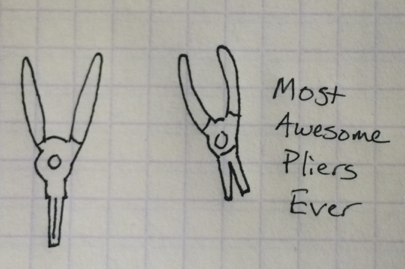 Most
Awesome
Pliers
Ever